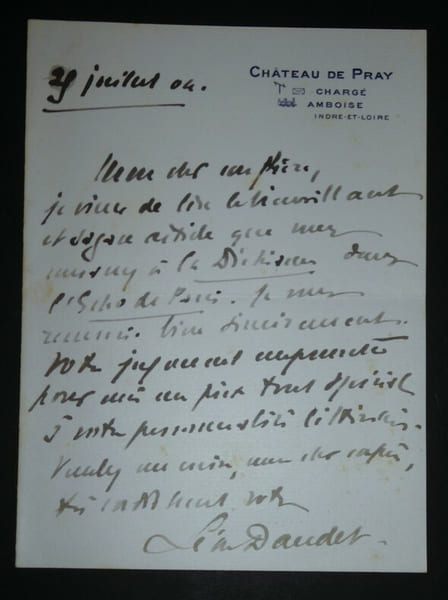 CHÂTEAU DE PRAY
CHARGÉ
AMBOISE
INDRE-ET-LOIRE
juillet 04.
Mon cher confrère,
je viens de lire le bienveillant
et article que vous
à la Déchéance dans
l'Echo de Paris. Je vous
remercie bien sincèrement.
Votre jugement emprunte
pour moi un prix tout spécial
à votre personnalité littéraire.
Veuillez me croire, mon cher confrère,
très cordialement votre
Léon Daudet.